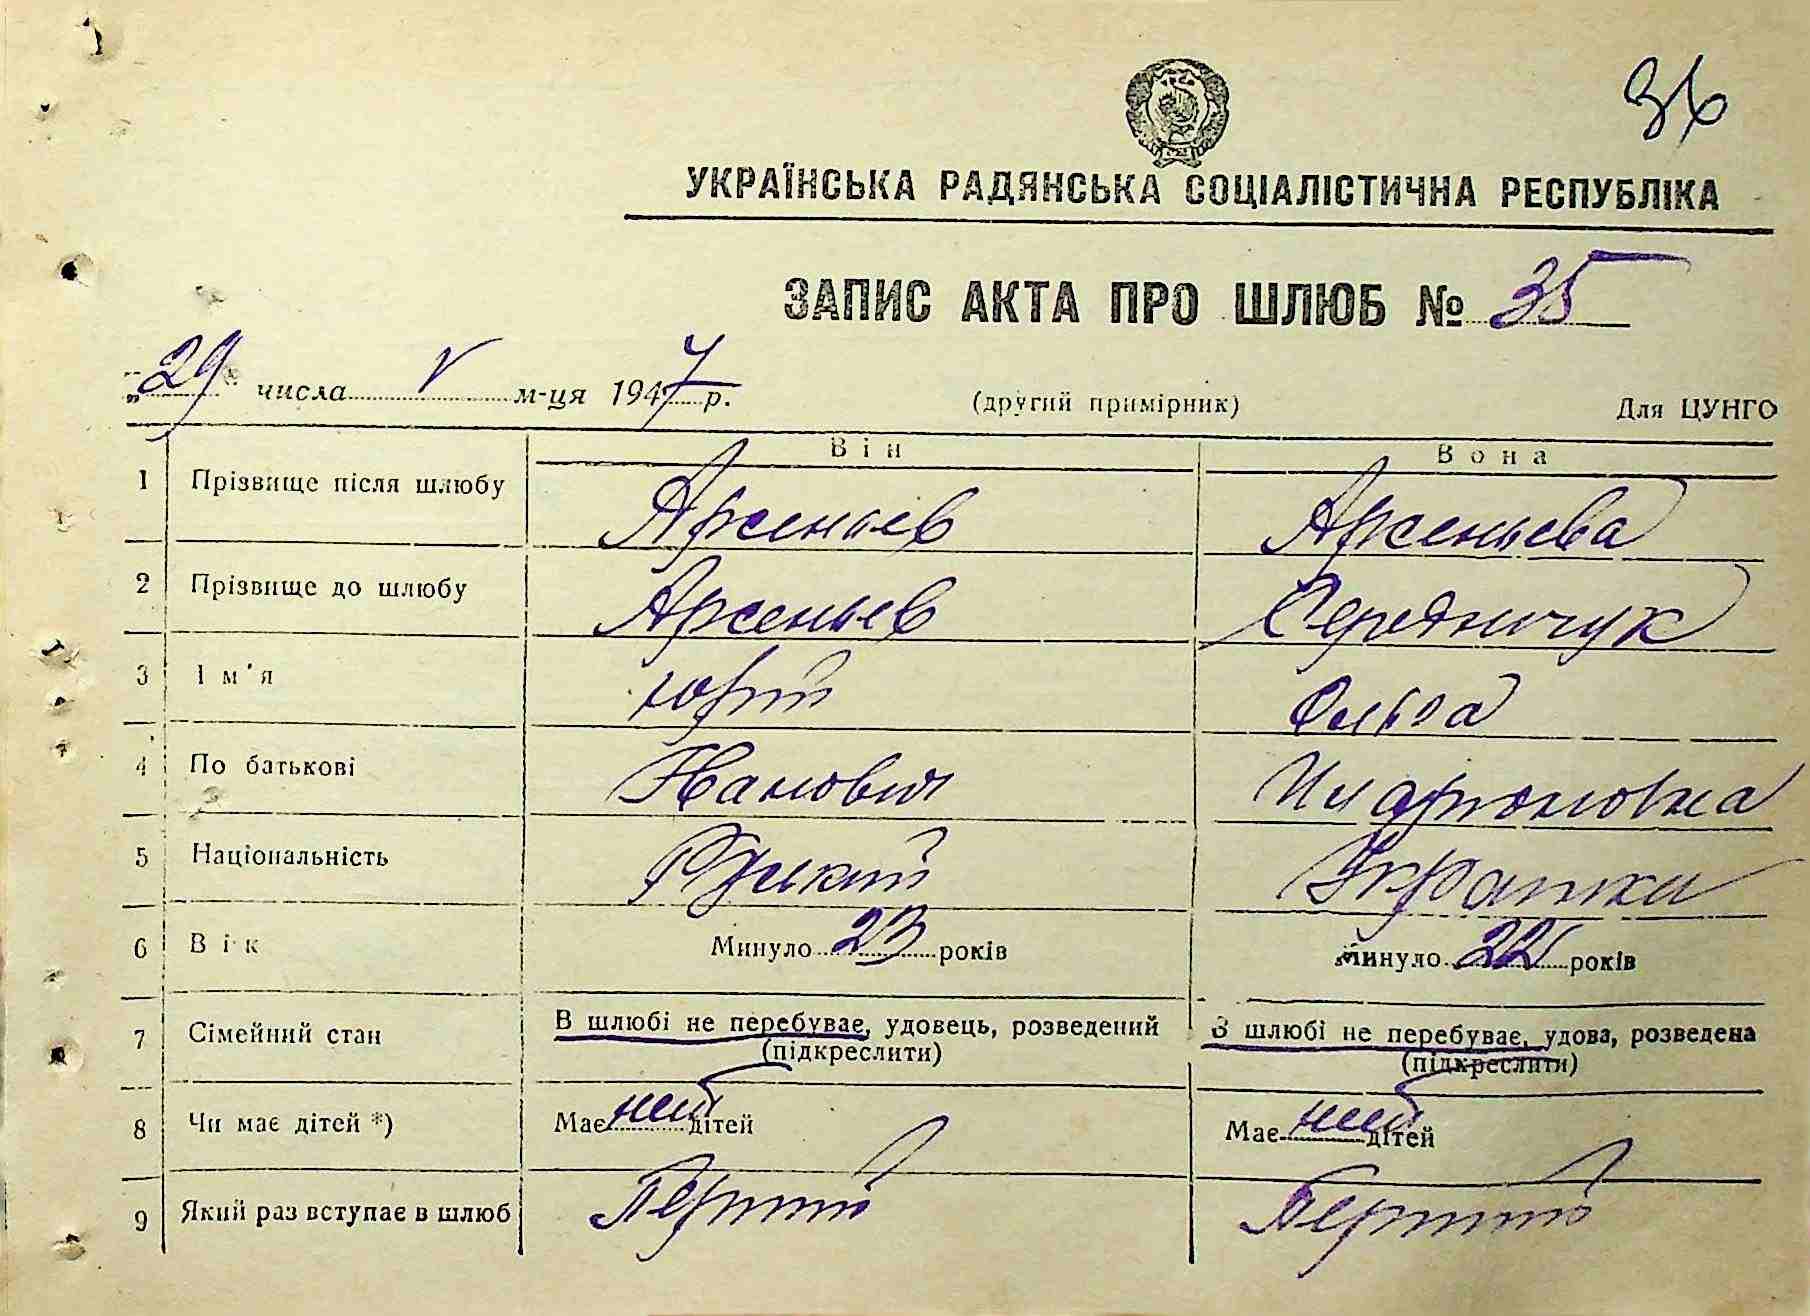 36
УКРАЇНСЬКА РАДЯНСЬКА СОЦІАЛІСТИЧНА РЕСПУБЛІКА
ЗАПИС АКТА ПРО ШЛЮБ № 35
„29" числа V м-ця 1947 р. (другий примірник) Для ЦУНГО
Він Вона
1 Прізвище після шлюбу Арсеньев Арсеньева
2 Прізвище до шлюбу Арсеньев Середничук
3 Ім'я Юрій Ольга
4 По батькові Иванович Иларионовна
5 Національність Руський Украінка
6 Вік Минуло 23 років Минуло 22 років
7 Сімейний стан В шлюбі не перебуває, удовець, розведений В шлюбі не перебуває, удова, розведена
(підкреслити) (підкреслити)
8 Чи має дітей *) Має нет дітей Має нет дітей
9 Який раз вступає в шлюб Первий Первий